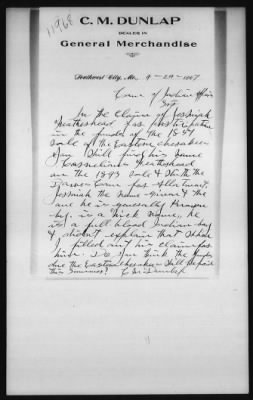 11968
C. M. DUNLAP
DEALER IN
General Merchandise
Southwest City, Mo., 9-29-1907
Com of Indian Affairs
In the Claim of Josiah
for participation
in the funds of the 1851
Roll of the Eastern Cherokees
you will find his name
on the 1893 Roll & with the
Dawes Com for Allotment,
the name given & the
one he is generally known
by, is a nick name, he
is a full blood Indian boy
& didn't explain that when
I filled out his claim for
him. Do you think the
due the Eastern Cherokees will be paid
this Summer? C M Dunlap